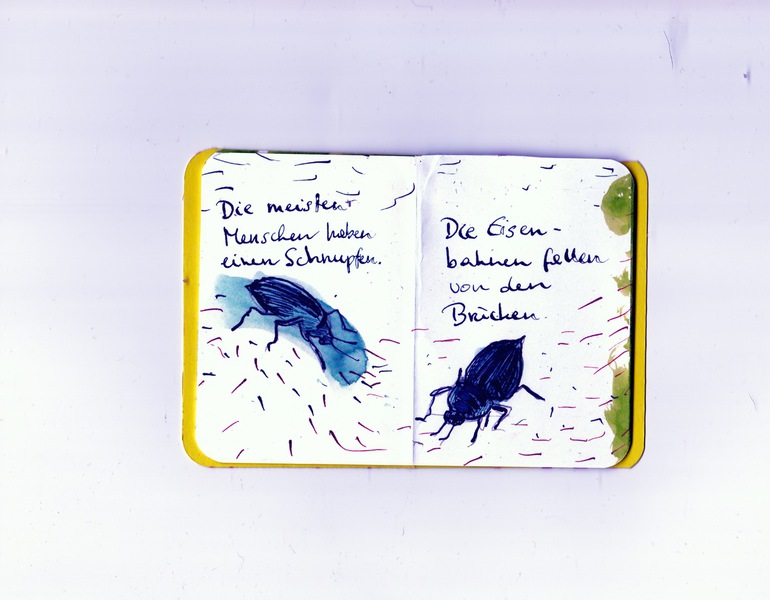 Die meisten
Menschen haben
einen Schnupfen.
Die Eisen-
bahnen fallen
von den
Brücken.